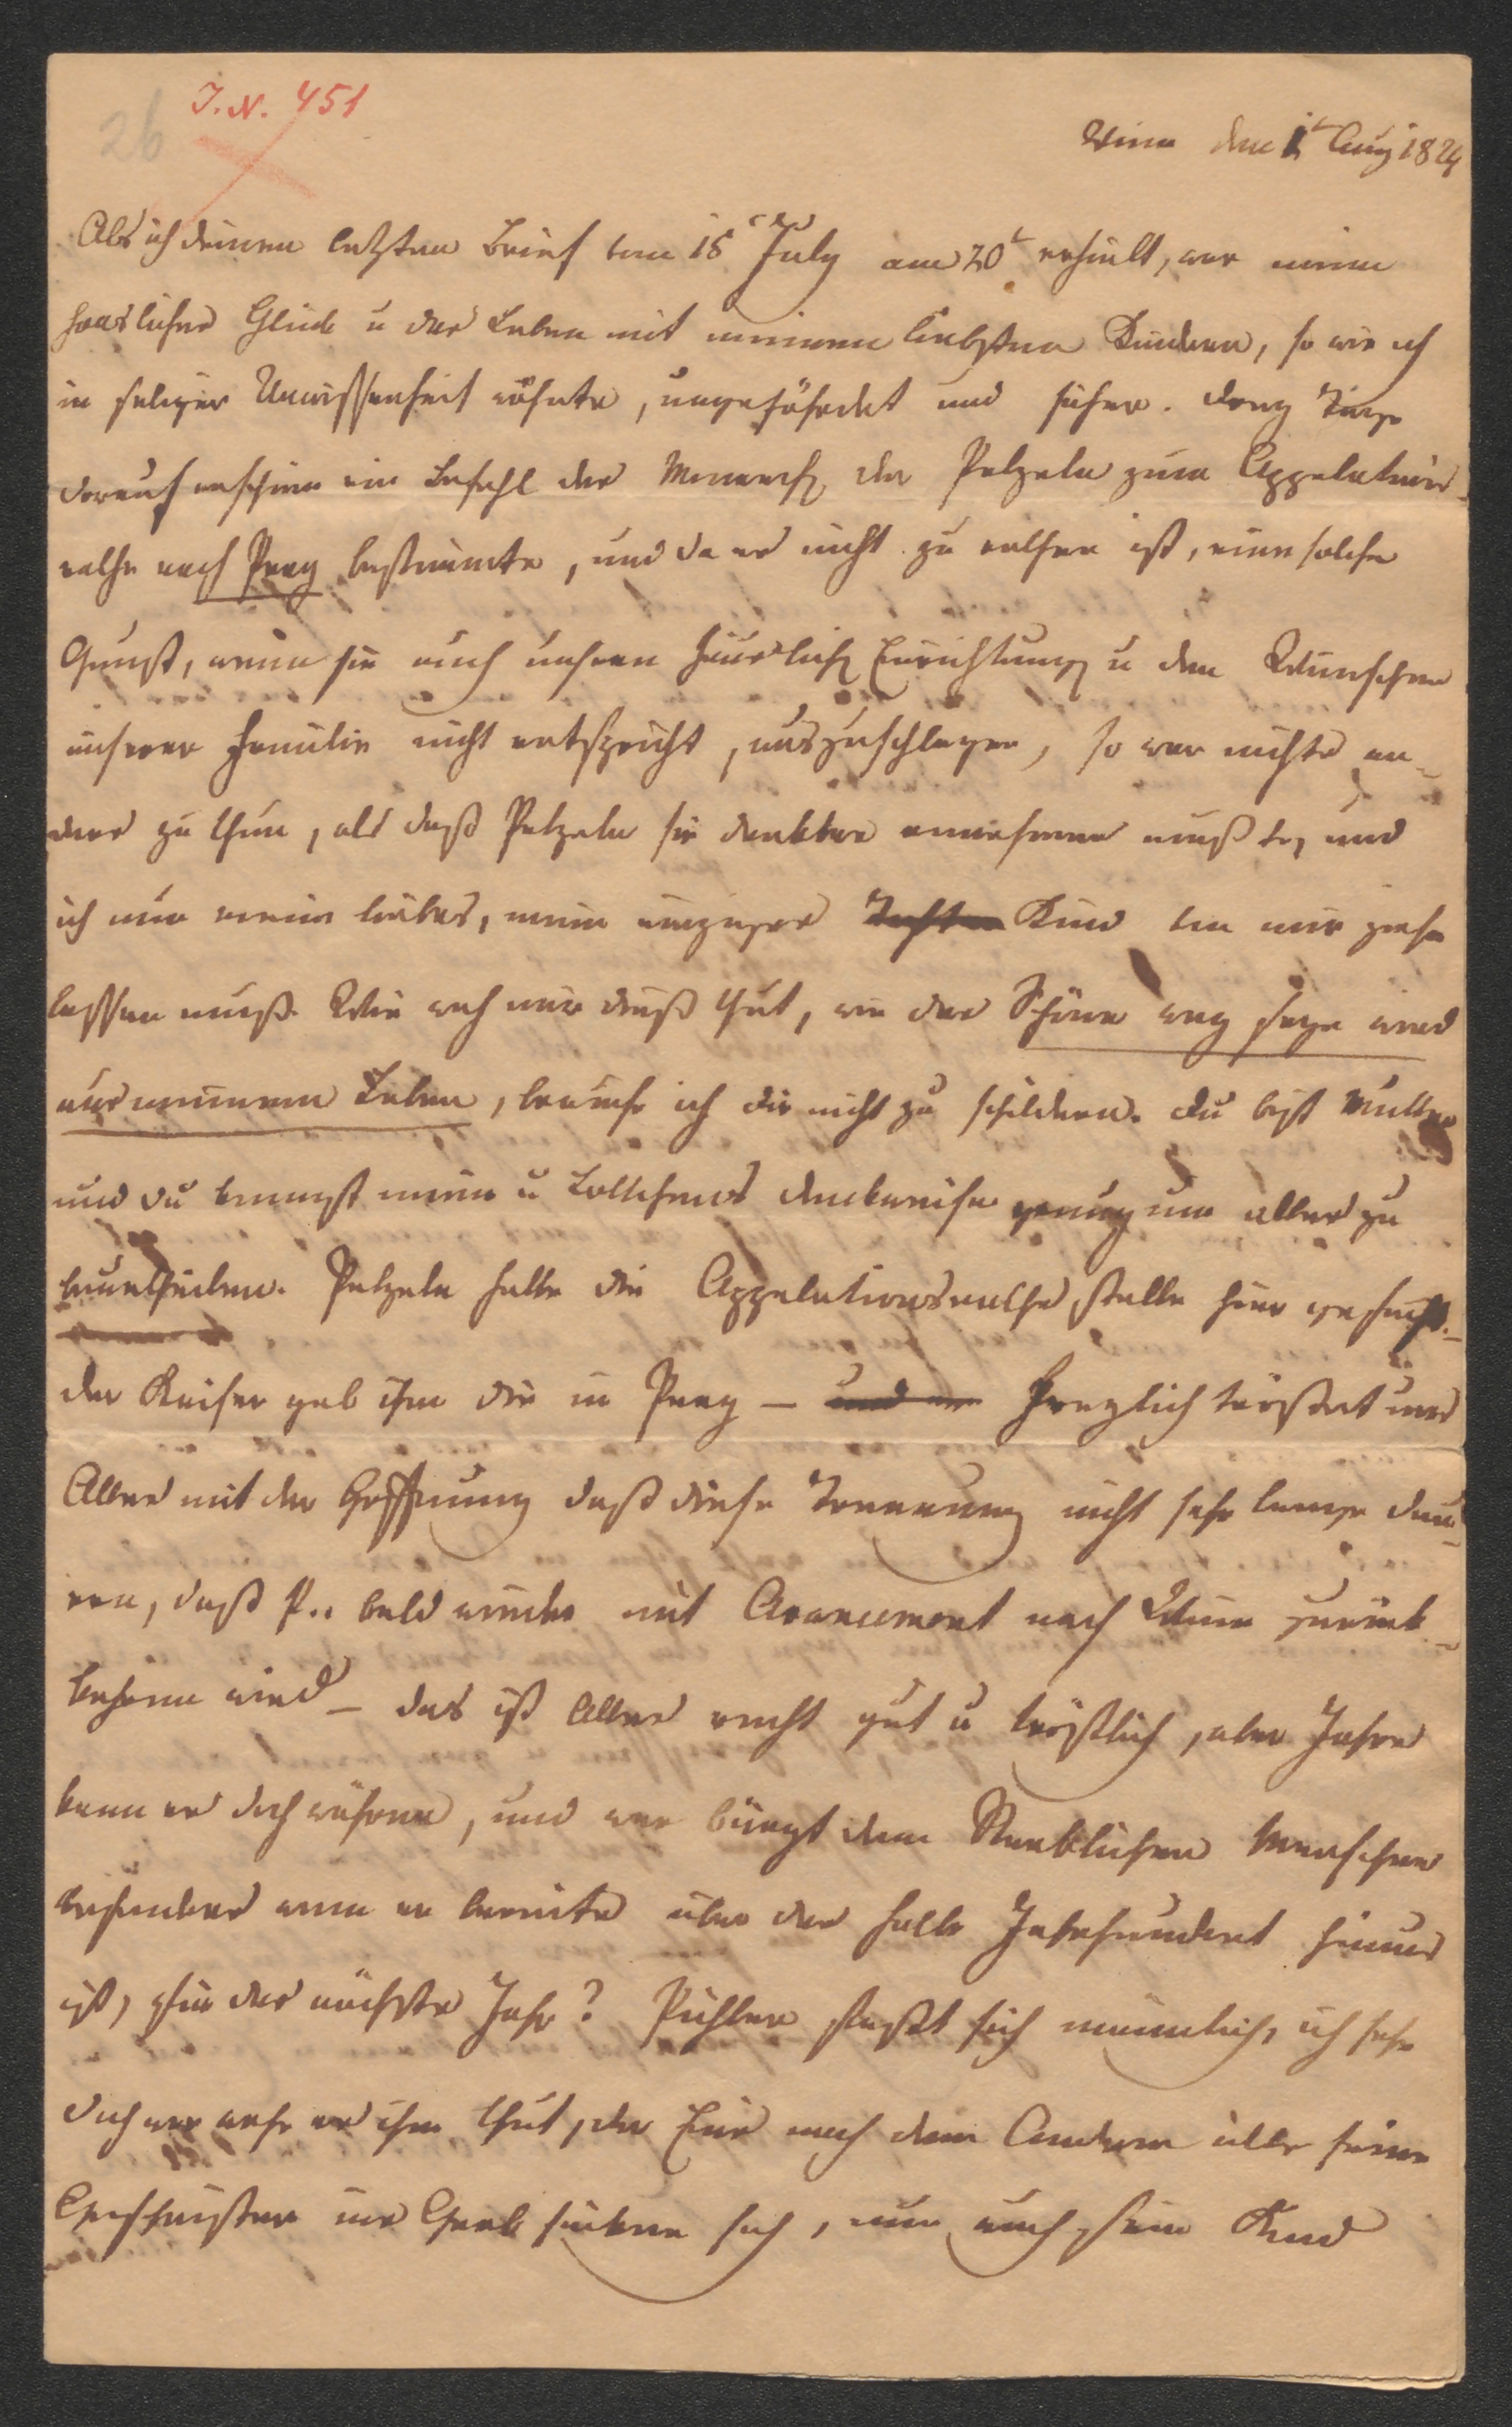 26
I. N. 451
Wien den 1t Aug 1824
Als ich deinen letzten Brief vom 15 July am 20t erhielt, war mein
häusliches Glück u das Leben mit meinen liebsten Kindern, so wie ich
in seliger Unwissenheit wähnte, ungefährdet und sicher. Drey Tage
darauf erschien ein Befehl des Monarch, der Pelzeln zum Appelations-
rathe nach Prag bestimmte, und da es nicht zu rathen ist, eine solche
Gunst, wenn sie auch unsern häuslich Einrichtung u den Wünschen
unserer Familie nicht entspricht, auszuschlagen, so war nichts an-
ders zu thun, als daß Pelzeln sie dankbar annehmen mußte, und
ich nun mein liebes, mein einziges Tochter Kind von mir ziehn
lassen muß. Wie weh mir dieß thut, wie das Schöne weg seyn wird
aus meinem Leben, brauche ich dir nicht zu schildern. Du bist Mutter
und du kennst mein u Lottchens Denkweise genug um alles zu
beurtheilen. Pelzeln hatte die Appelationsrathsstelle hier gesucht.
der Kaiser gab ihm die in Prag – und Herzlich tröstet uns
Alles mit der Hoffnung daß diese Trennung nicht sehr lange dau-
ern, daß P.. bald wieder mit Avancement nach Wien zurück-
kehren wird – das ist Alles recht gut u tröstlich, aber Jahre
kann es doch währen, und wer bürgt dem Sterblichen Menschen
besonders wenn er bereits über das halbe Jahrhundert hinaus
ist, für das nächste Jahr? Pichler faßt sich männlich, ich sehe
doch wie wehe es ihm thut, der Eins nach dem Andern alle seine
Geschwister ins Grab sinken sah, nun auch sein Kind